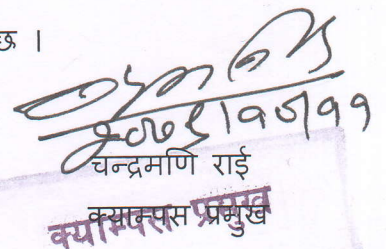 छ ।
२०७९।१०।११
चन्द्रमणि राई
क्याम्पस प्रमुख
क्याम्पस प्रमुख